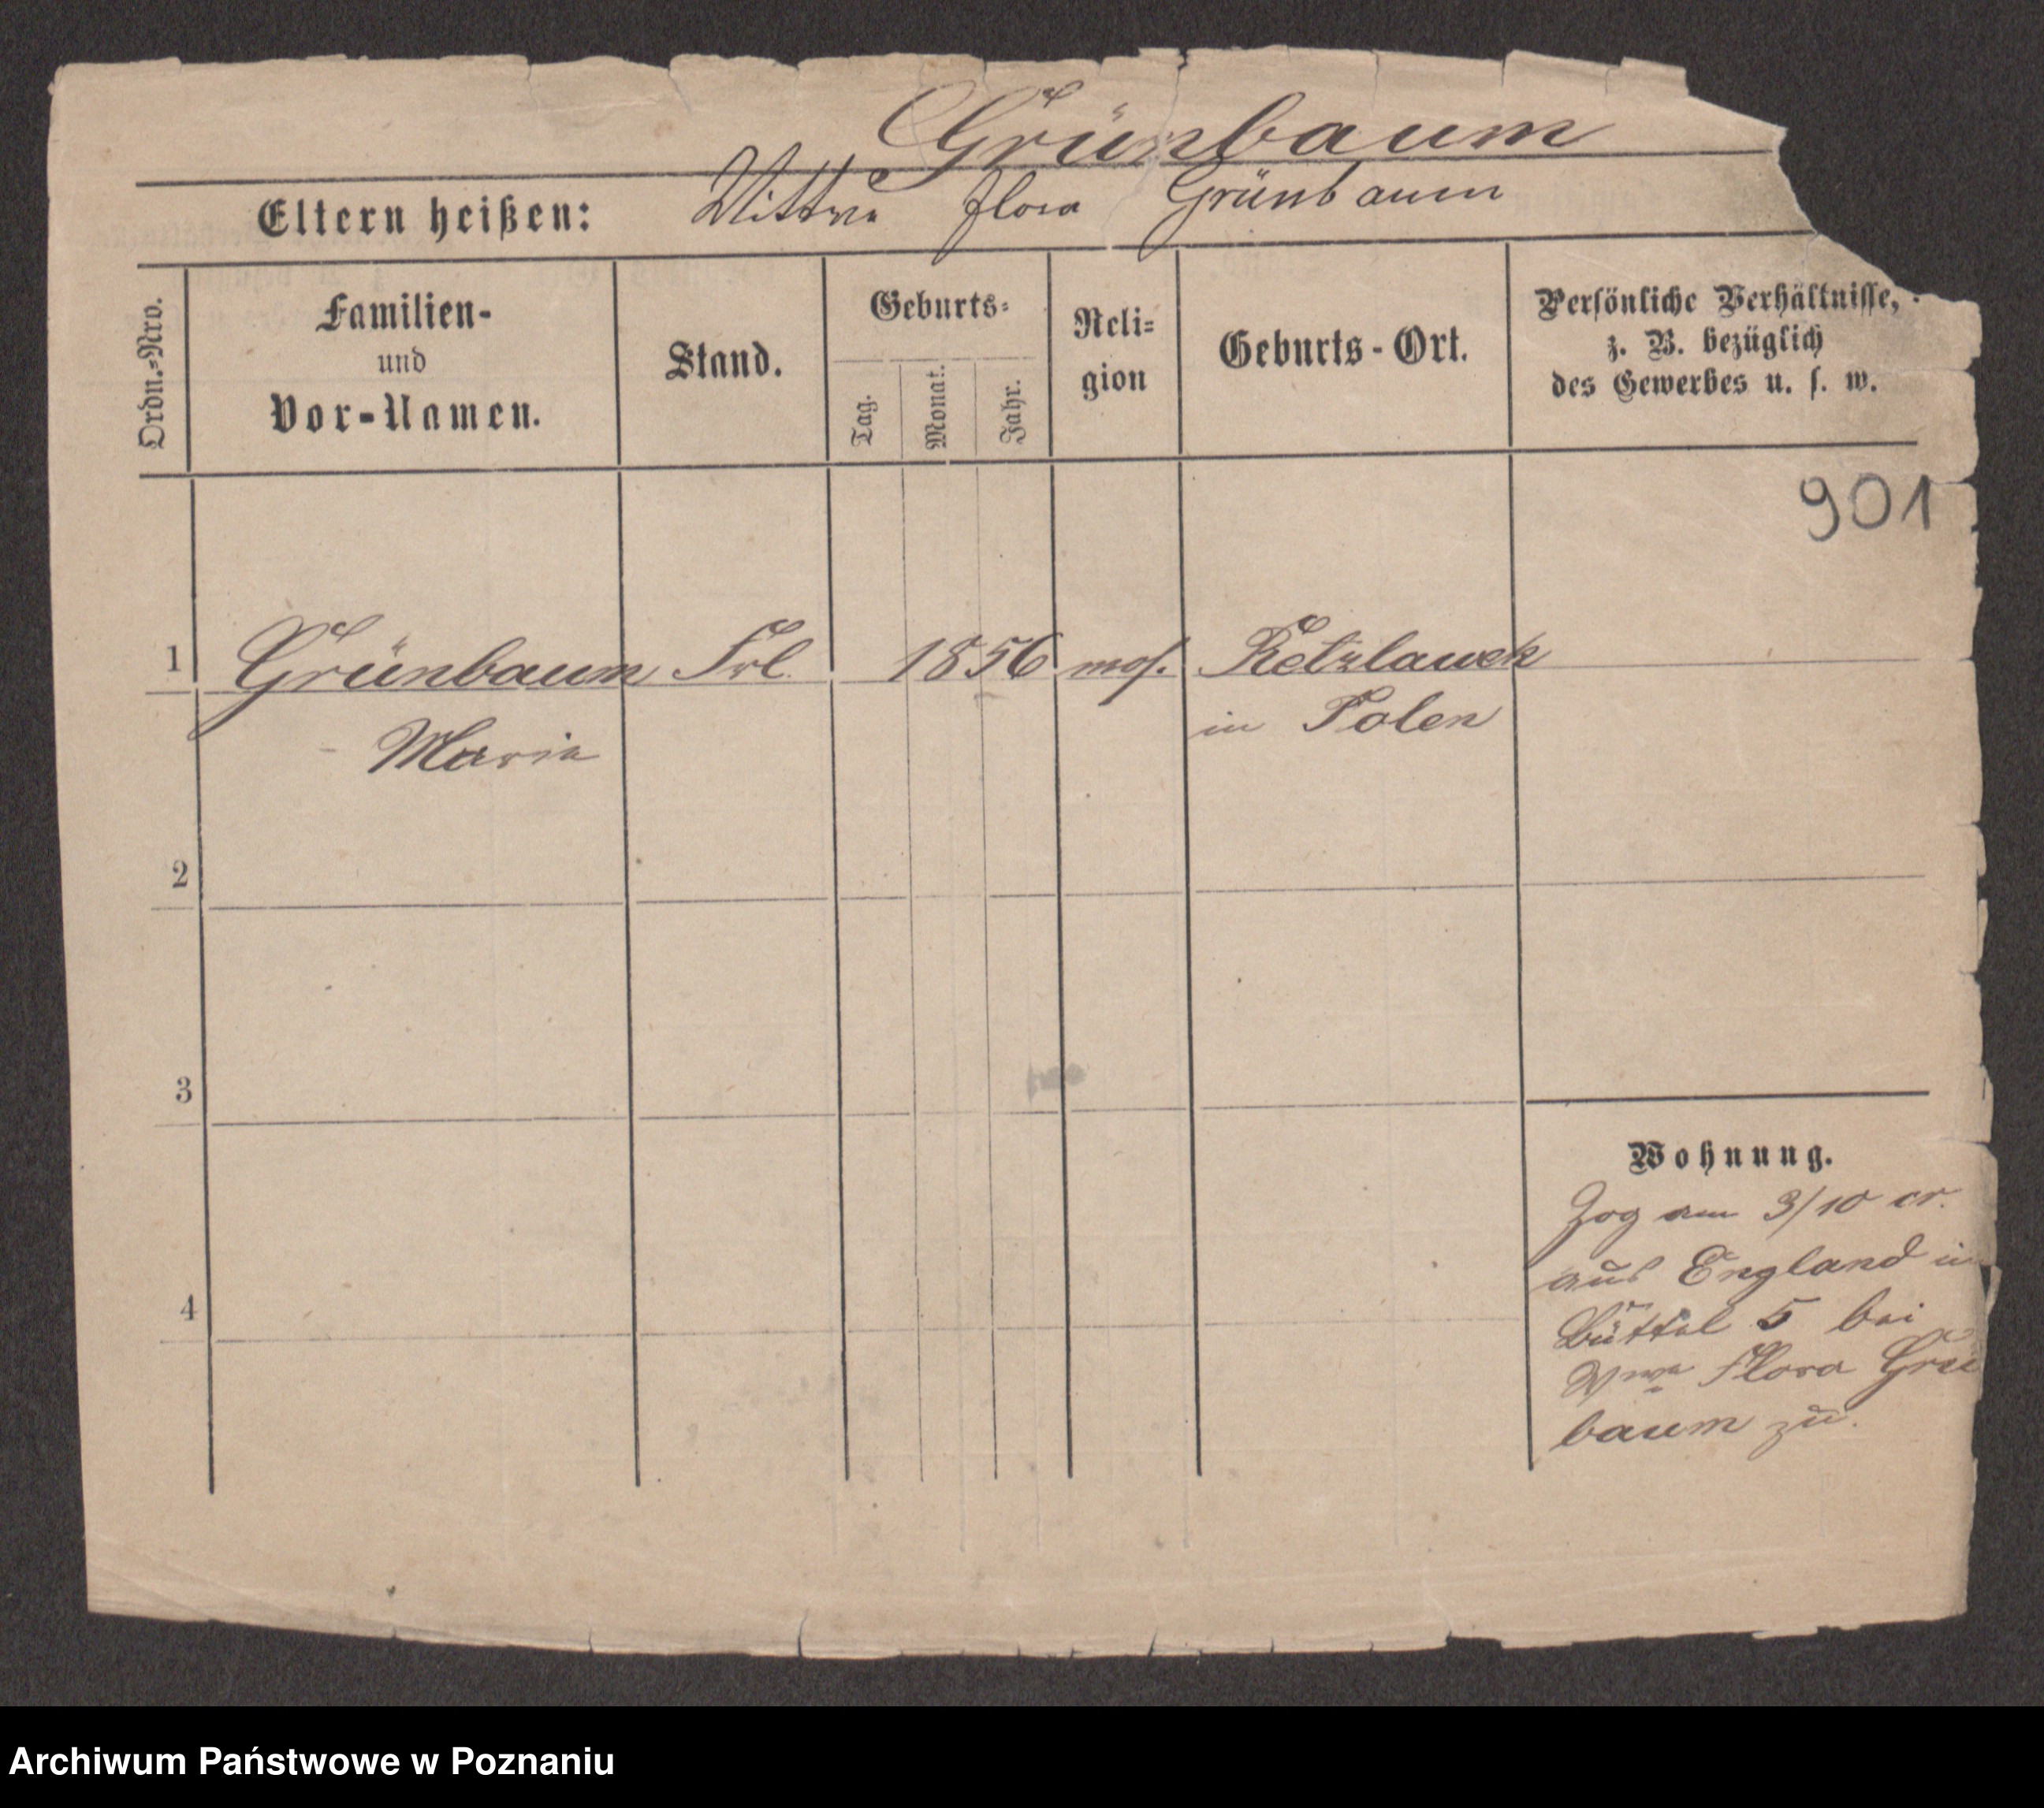 Grünbaum
Eltern heißen: Wittwe Flora Grünbaum
Ordn.-Nro.
Familien-
und
Vor-Namen.
Stand.
Geburts-
Tag.
Monat.
Jahr.
Reli-
gion
Geburts-Ort.
Persönliche Verhältnisse,
z. B. bezüglich
des Gewerbes u. s. w.
901
1 Grünbaum Frl. 1856 mos. Retzlawek
Maria in Polen
2
3
4
Wohnung.
Zog am 3/10 cr.
aus England in
Büttel 5 bei
Wwe Flora Grü
baum zu.
Archiwum Państwowe w Poznaniu